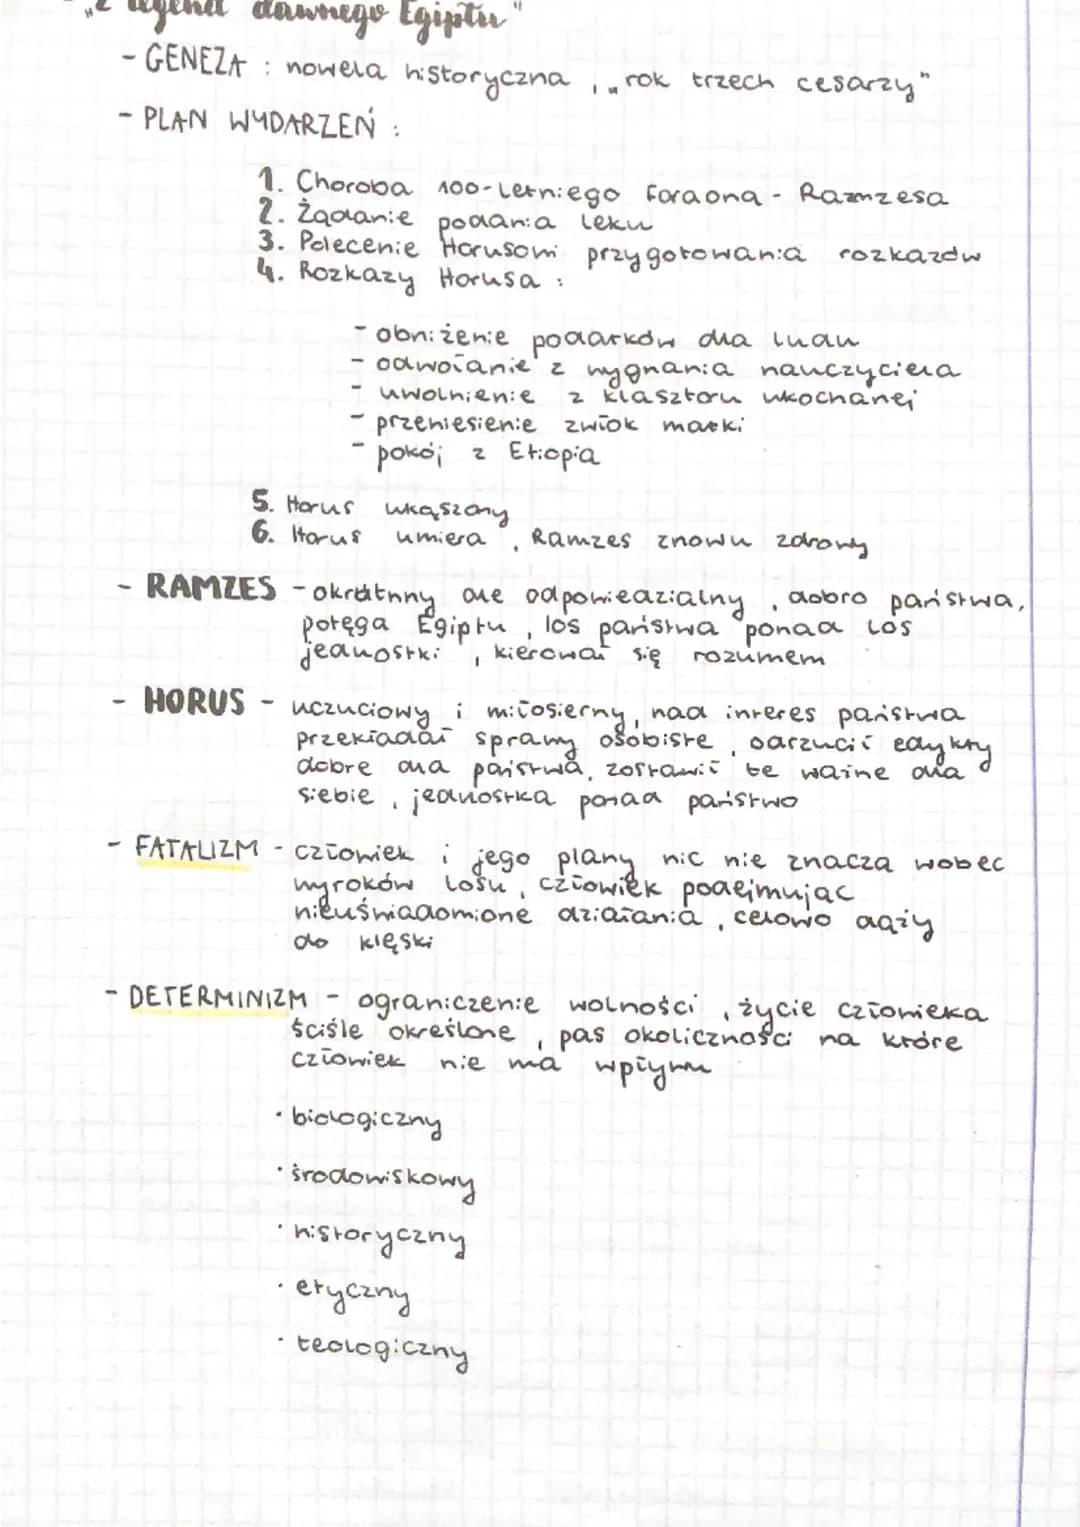 "Z legend dawnego Egiptu"
- GENEZA : nowela historyczna , „rok trzech cesarzy"
- PLAN WYDARZEŃ :
1. Choroba 100-letniego faraona - Ramzesa
2. Żądanie podania leku
3. Polecenie Horusowi przygotowania rozkazów
4. Rozkazy Horusa :
- obniżenie podatków dla ludu
- odwołanie z wygnania nauczyciela
- uwolnienie z klasztoru ukochanej
- przeniesienie zwłok matki
- pokój z Etiopią
5. Horus ukąszony
6. Horus umiera , Ramzes znowu zdrowy
- RAMZES - okrutnny ale odpowiedzialny , dobro państwa,
potęga Egiptu , los państwa ponad los
jednostki , kierował się rozumem
- HORUS - uczuciowy i miłosierny, nad interes państwa
przekładał sprawy osobiste , odrzucił edykty
dobre dla państwa, zostawił te ważne dla
siebie , jednostka ponad państwo
- FATALIZM - człowiek i jego plany nic nie znacza wobec
wyroków losu , człowiek podejmując
nieuświadomione działania , celowo dąży
do klęski
- DETERMINIZM - ograniczenie wolności , życie człowieka
ściśle określone , pas okoliczności na które
człowiek nie ma wpływu
· biologiczny
· środowiskowy
· historyczny
· etyczny
· teologiczny